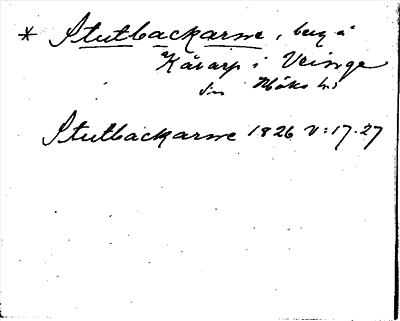 * Stutbackarne, berg å
Kåarp i Veinge
sn Höks hd
Stutbackarne 1826 V:17.27